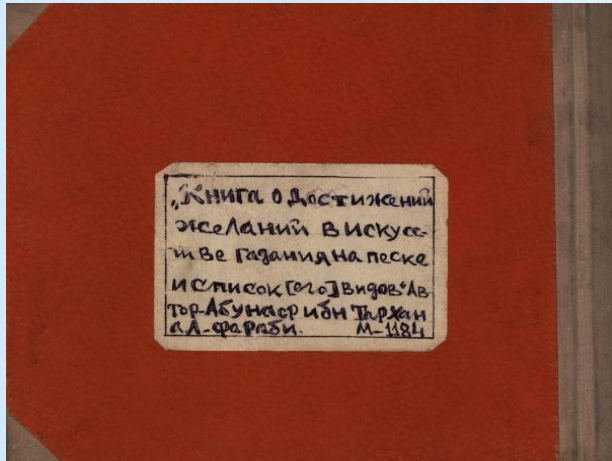 „Книга о достижений
желаний в искусс-
тве гадания на песке
и список [его] видов“ Ав
тор-Абунаср ибн Тархан
ал-фараби. М-1184